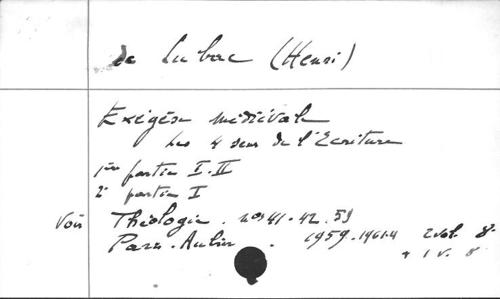 de Lubac (Henri)
Exégèse médiévale
Les 4 sens de l'Ecriture
1ère partie I. II
2e partie I
Voir Théologie. nos 41. 42. 59
Paris. Aubier. 1959-1961.4 2 vol. 8°
+ 1 v. 8°